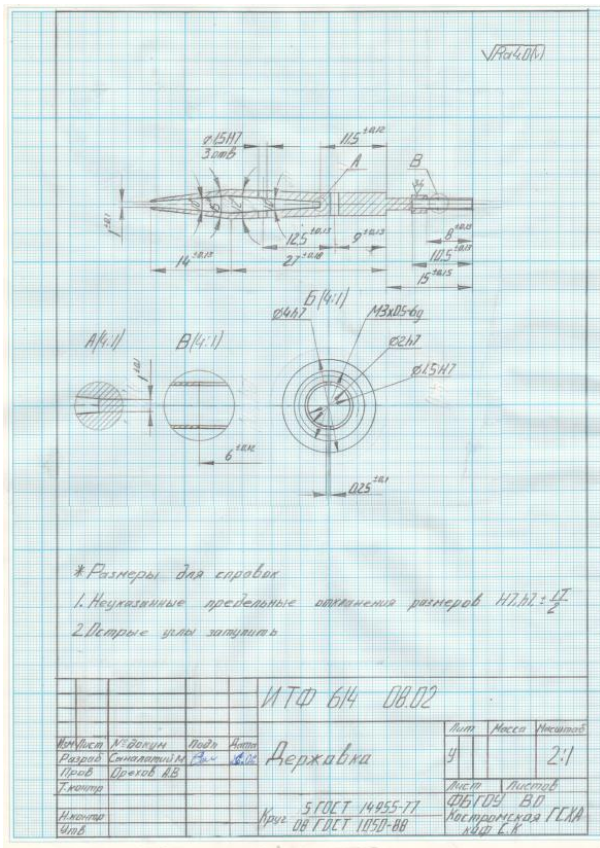 √Ra4.0(√)
⌀1.5H7
3 отв
11.5±0.12
А
В
1±0.1
8±0.13
12.5±0.13
9±0.13
10.5±0.13
14±0.15
27±0.18
15±0.15
Б(4:1)
⌀4h7
М3х0.5-6g
А(4:1)
В(4:1)
⌀2h7
⌀1.5H7
1±0.1
6±0.12
0.25±0.1
* Размеры для справок
1. Неуказанные предельные отклонения размеров H7, h7, ± IT/2
2. Острые углы затупить
ИТФ 614 08.02
Изм Лист № докум Подп Дата
Разраб
Пров Орехов А.В
Т.контр
Н.контр
Утв
Державка
Лит Масса Масштаб
У 2:1
Лист Листов
Круг 5 ГОСТ 14955-77
08 ГОСТ 1050-88
ФБГОУ ВО
Костромская ГСХА
каф С.К